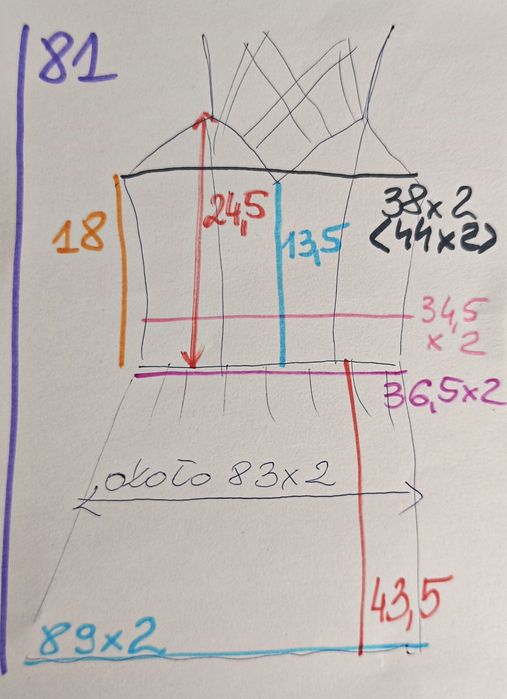 81
18
24,5
13,5
38x2
(44x2)
34,5
x2
36,5x2
około 83x2
43,5
89x2